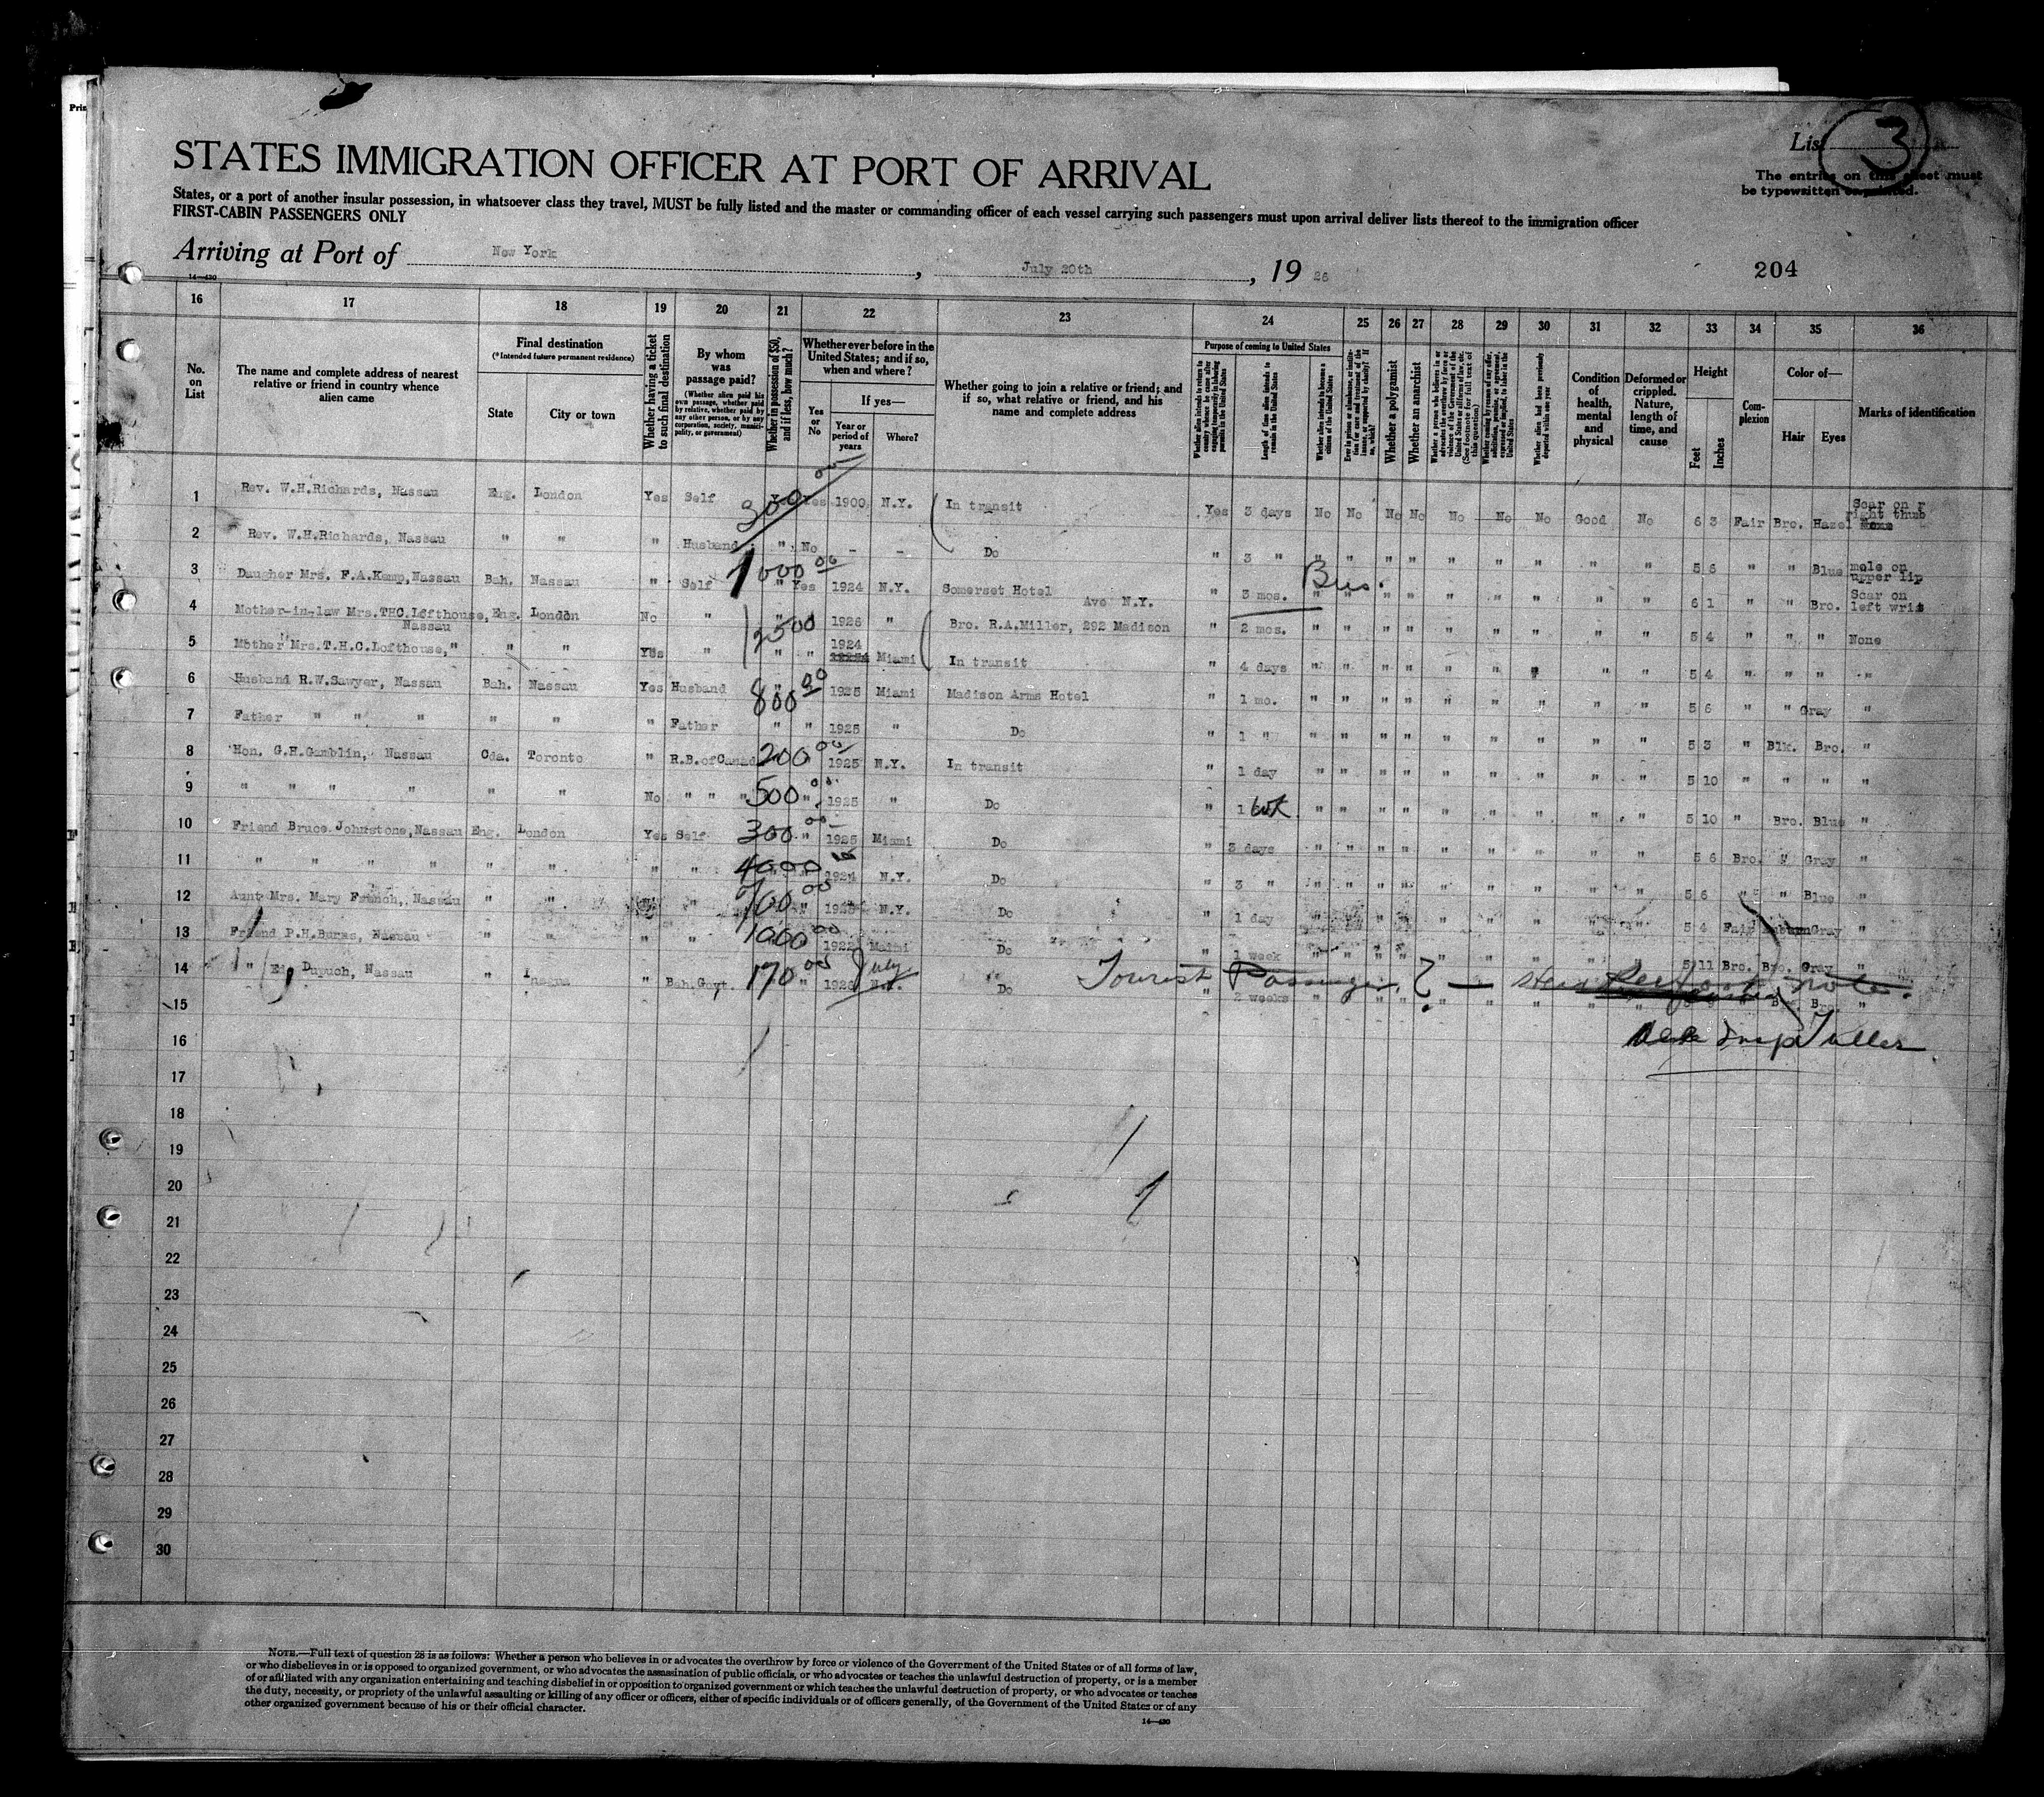 Prin
STATES IMMIGRATION OFFICER AT PORT OF ARRIVAL
List 3
The entries on this sheet must
be typewritten or printed.
States, or a port of another insular possession, in whatsoever class they travel, MUST be fully listed and the master or commanding officer of each vessel carrying such passengers must upon arrival deliver lists thereof to the immigration officer
FIRST-CABIN PASSENGERS ONLY
Arriving at Port of New York, July 20th, 19 26
204
14—430
16 17 18 19 20 21 22 23 24 25 26 27 28 29 30 31 32 33 34 35 36
No. on List
The name and complete address of nearest relative or friend in country whence alien came
Final destination
(*Intended future permanent residence)
State
City or town
Whether having a ticket to such final destination
By whom was passage paid?
(Whether alien paid his own passage, whether paid by relative, whether paid by any other person, or by any corporation, society, municipality, or government)
Whether in possession of $50, and if less, how much?
Whether ever before in the United States; and if so, when and where?
Yes or No
If yes—
Year or period of years
Where?
Whether going to join a relative or friend; and if so, what relative or friend, and his name and complete address
Purpose of coming to United States
Whether alien intends to return to country whence he came after engaging temporarily in laboring pursuits in the United States
Length of time alien intends to remain in the United States
Whether alien intends to become a citizen of the United States
Whether a polygamist
Whether an anarchist
(See footnote for full text of this question)
Whether alien had been previously deported within one year
Condition of health, mental and physical
Deformed or crippled. Nature, length of time, and cause
Height
Feet
Inches
Complexion
Color of—
Hair
Eyes
Marks of identification
1 Rev. W.H.Richards, Nassau Eng. London Yes Self 300 00 Yes 1900 N.Y. In transit Yes 3 days No No No No No No No Good No 6 3 Fair Bro. Hazel Scar on r right thumb
2 Rev. W.H.Richards, Nassau " " " Husband " No - - Do " 3 " " " " " " " " " " 5 6 " " Blue mole on upper lip
3 Daugher Mrs. F.A.Kemp, Nassau Bah. Nassau " Self 1000 00 " Yes 1924 N.Y. Somerset Hotel " 3 mos. Bus. " " " " " " " " " 6 1 " " Bro. Scar on left wris
4 Mother-in-law Mrs. THC. Lofthouse, Nassau Eng. London No " 2500 1926 " Bro. R.A.Miller, 292 Madison Ave N.Y. " 2 mos. " " " " " " " " " 5 4 " " " None
5 Mother Mrs. T.H.C. Lofthouse, " " " Yes " " " 1924 Miami In transit " 4 days " " " " " " " " " 5 4 " " " "
6 Husband R.W.Sawyer, Nassau Bah. Nassau Yes Husband 800 00 " 1925 Miami Madison Arms Hotel " 1 mo. " " " " " " " " " 5 6 " " Gray "
7 Father " " " " " " Father " " 1925 " Do " 1 " " " " " " " " " " 5 3 " Blk. Bro. "
8 Hon. G.H.Gamblin, Nassau Cda. Toronto " R.B.ofCanad 200 00 " 1925 N.Y. In transit " 1 day " " " " " " " " " 5 10 " " " "
9 " " " " " " No " " " 500 00 " 1925 " Do " 1 wk " " " " " " " " " 5 10 " Bro. Blue "
10 Friend Bruce Johnstone, Nassau Eng. London Yes Self 300 00 " 1925 Miami Do " 3 days " " " " " " " " " 5 6 Bro. " Gray "
11 " " " " " " " " 4000 00 1924 N.Y. Do " 3 " " " " " " " " " " 5 6 " " Blue "
12 Aunt Mrs. Mary French, Nassau " " " " 700 00 " 1925 N.Y. Do " 1 day " " " " " " " " " 5 4 Fair Auburn Gray "
13 Friend P.H.Burns, Nassau " " " " 1000 00 1922 Maimi Do " 1 week " " " " " " " " " 5 11 Bro. Bro. Gray "
14 " Ed. Dupuch, Nassau " Inagua " Bah.Govt. 170 00 " 1926 July Do " 2 weeks " " " " " " " " " Bro. "
Tourist Passenger ? — note.
see Insp Tuller
15
16
17
18
19
20
21
22
23
24
25
26
27
28
29
30
NOTE.—Full text of question 28 is as follows: Whether a person who believes in or advocates the overthrow by force or violence of the Government of the United States or of all forms of law,
or who disbelieves in or is opposed to organized government, or who advocates the assassination of public officials, or who advocates or teaches the unlawful destruction of property, or is a member
of or affiliated with any organization entertaining and teaching disbelief in or opposition to organized government or which teaches the unlawful destruction of property, or who advocates or teaches
the duty, necessity, or propriety of the unlawful assaulting or killing of any officer or officers, either of specific individuals or of officers generally, of the Government of the United States or of any
other organized government because of his or their official character.
14—430